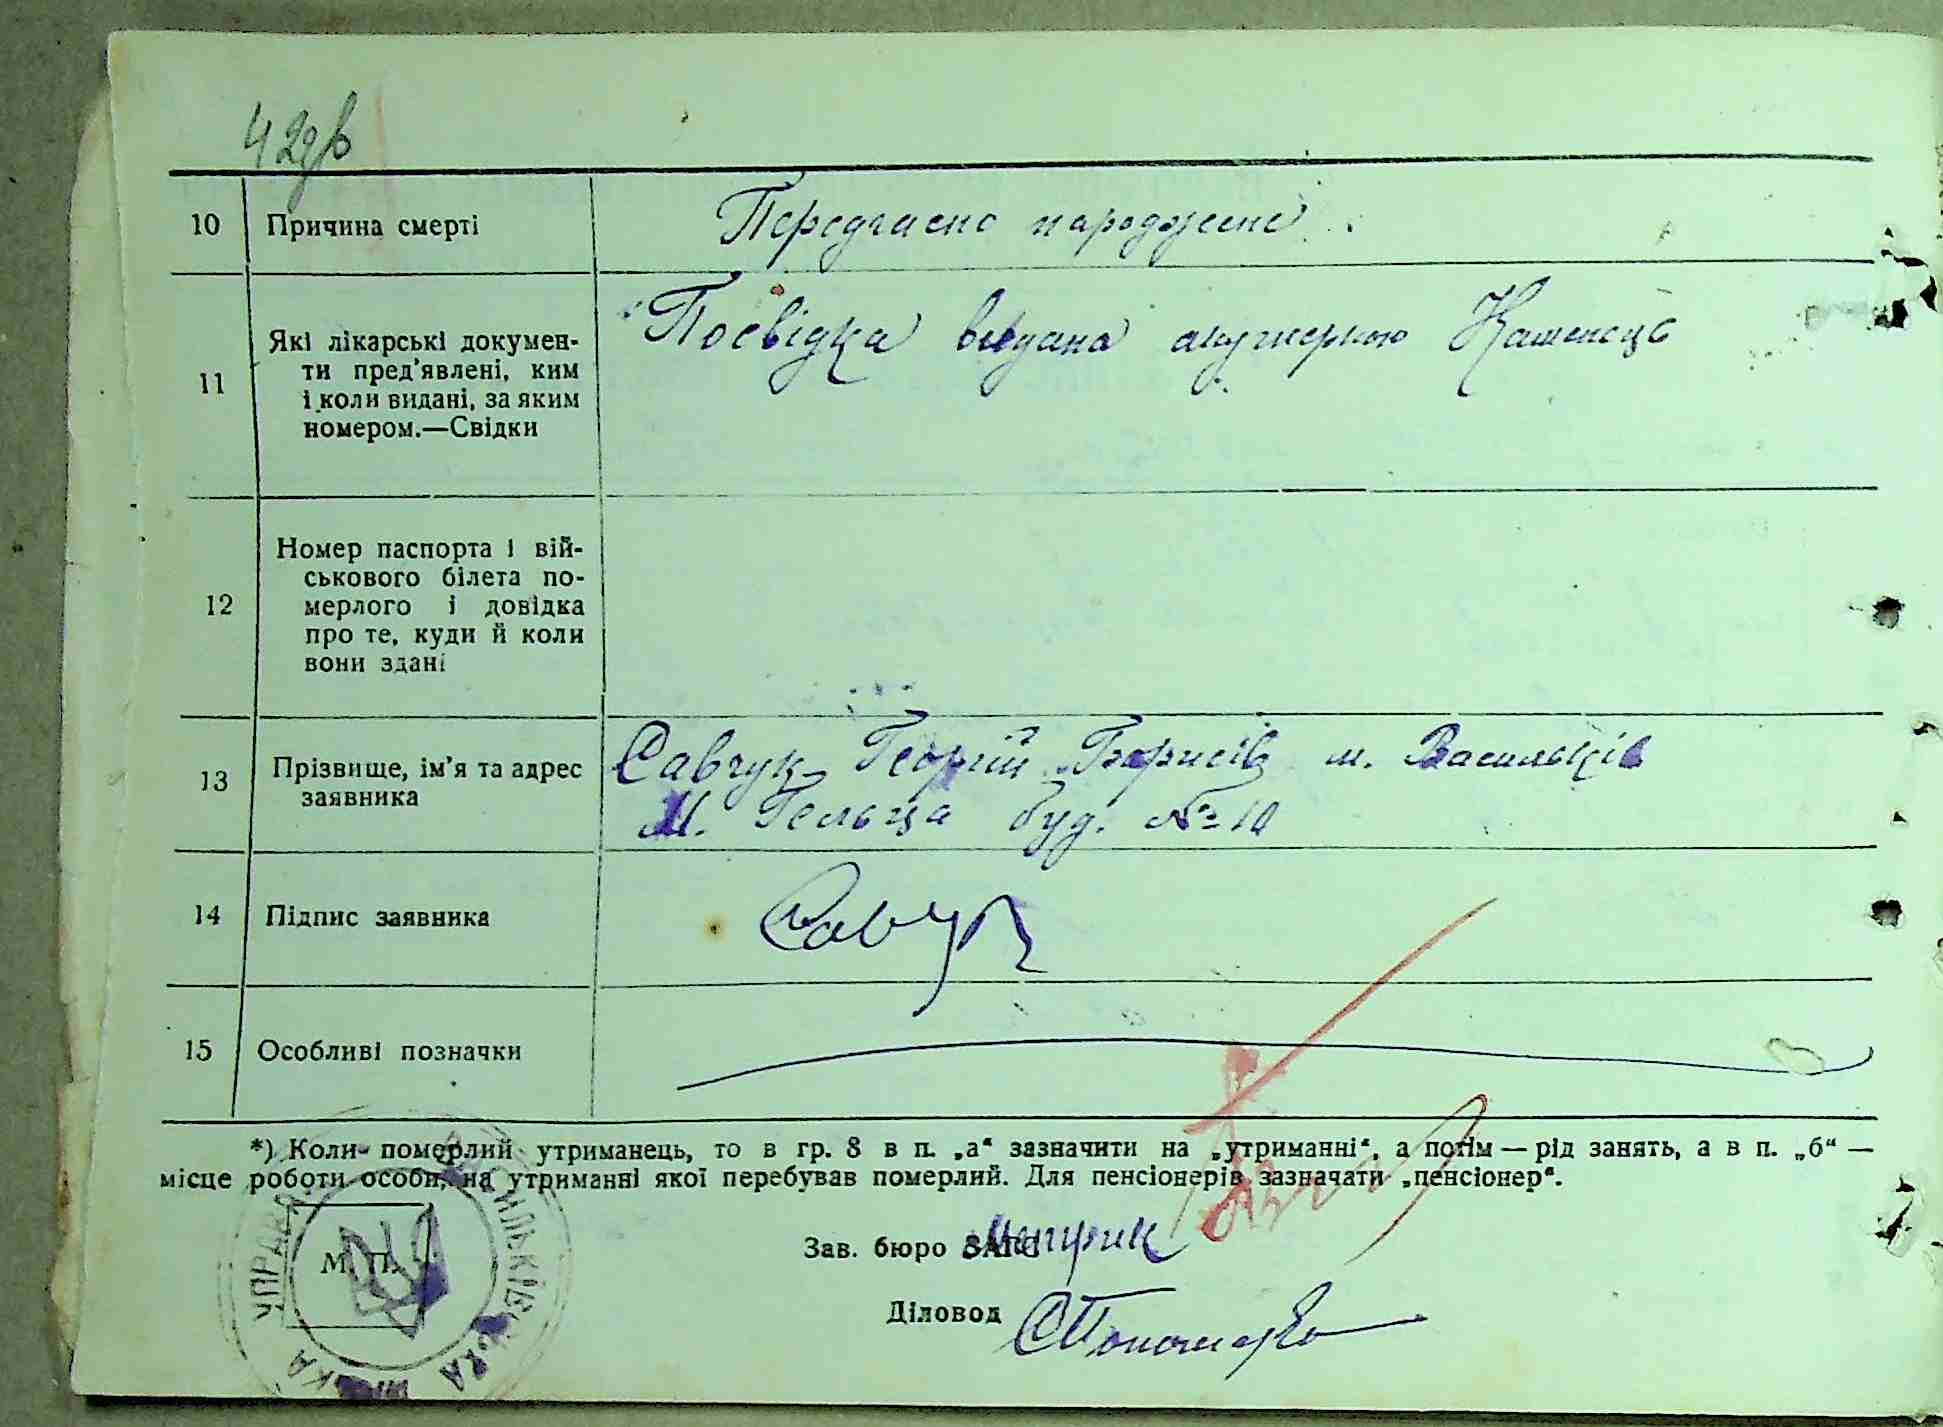 42зв
10 Причина смерті Передчасно народжене.
11 Які лікарські докумен-
ти пред'явлені, ким
і коли видані, за яким
номером.—Свідки
Посвідка видана акушеркою
12 Номер паспорта і вій-
ськового білета по-
мерлого і довідка
про те, куди й коли
вони здані
13 Прізвище, ім'я та адрес
заявника
Савчук Георгій Борисів м. Васильків
буд. № 10
14 Підпис заявника Савчук
15 Особливі позначки
*) Коли померлий утриманець, то в гр. 8 в п. „а“ зазначити на „утриманні“, а потім — рід занять, а в п. „б“ —
місце роботи особи, на утриманні якої перебував померлий. Для пенсіонерів зазначати „пенсіонер“.
М. П.
ВАСИЛЬКІВСЬКА УПРАВА
Зав. бюро ЗАГС
Діловод